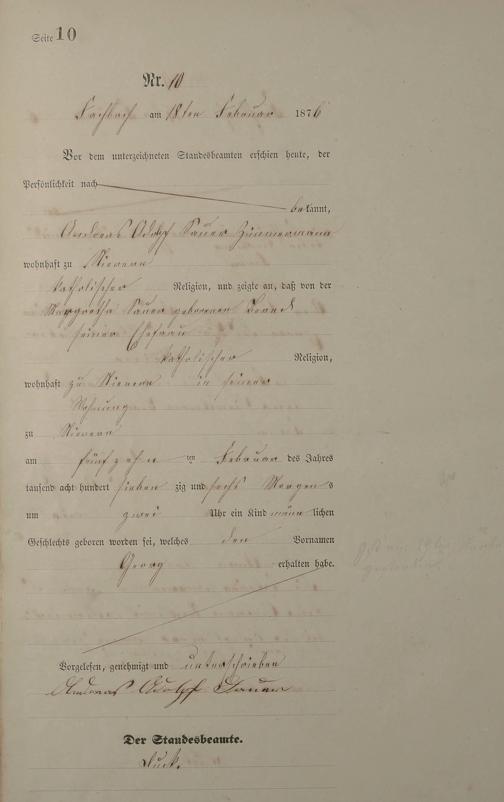 Seite 10
Nr. 10
Fachbach am 18ten Februar 1876
Vor dem unterzeichneten Standesbeamten erschien heute, der
Persönlichkeit nach
bekannt,
Andreas Adolf Sauer Zimmermann
wohnhaft zu Nievern
katholischer Religion, und zeigte an, daß von der
Margaretha Sauer geborenen
seiner Ehefrau
katholischer Religion,
wohnhaft zu Nievern in seiner
Wohnung
zu Nievern
am fünfzehn ten Februar des Jahres
tausend acht hundert sieben zig und sechs Morgens
um zwei Uhr ein Kind männlichen
Geschlechts geboren worden sei, welches den Vornamen
Georg erhalten habe.
Vorgelesen, genehmigt und unterschrieben
Andreas Adolf Sauer
Der Standesbeamte.